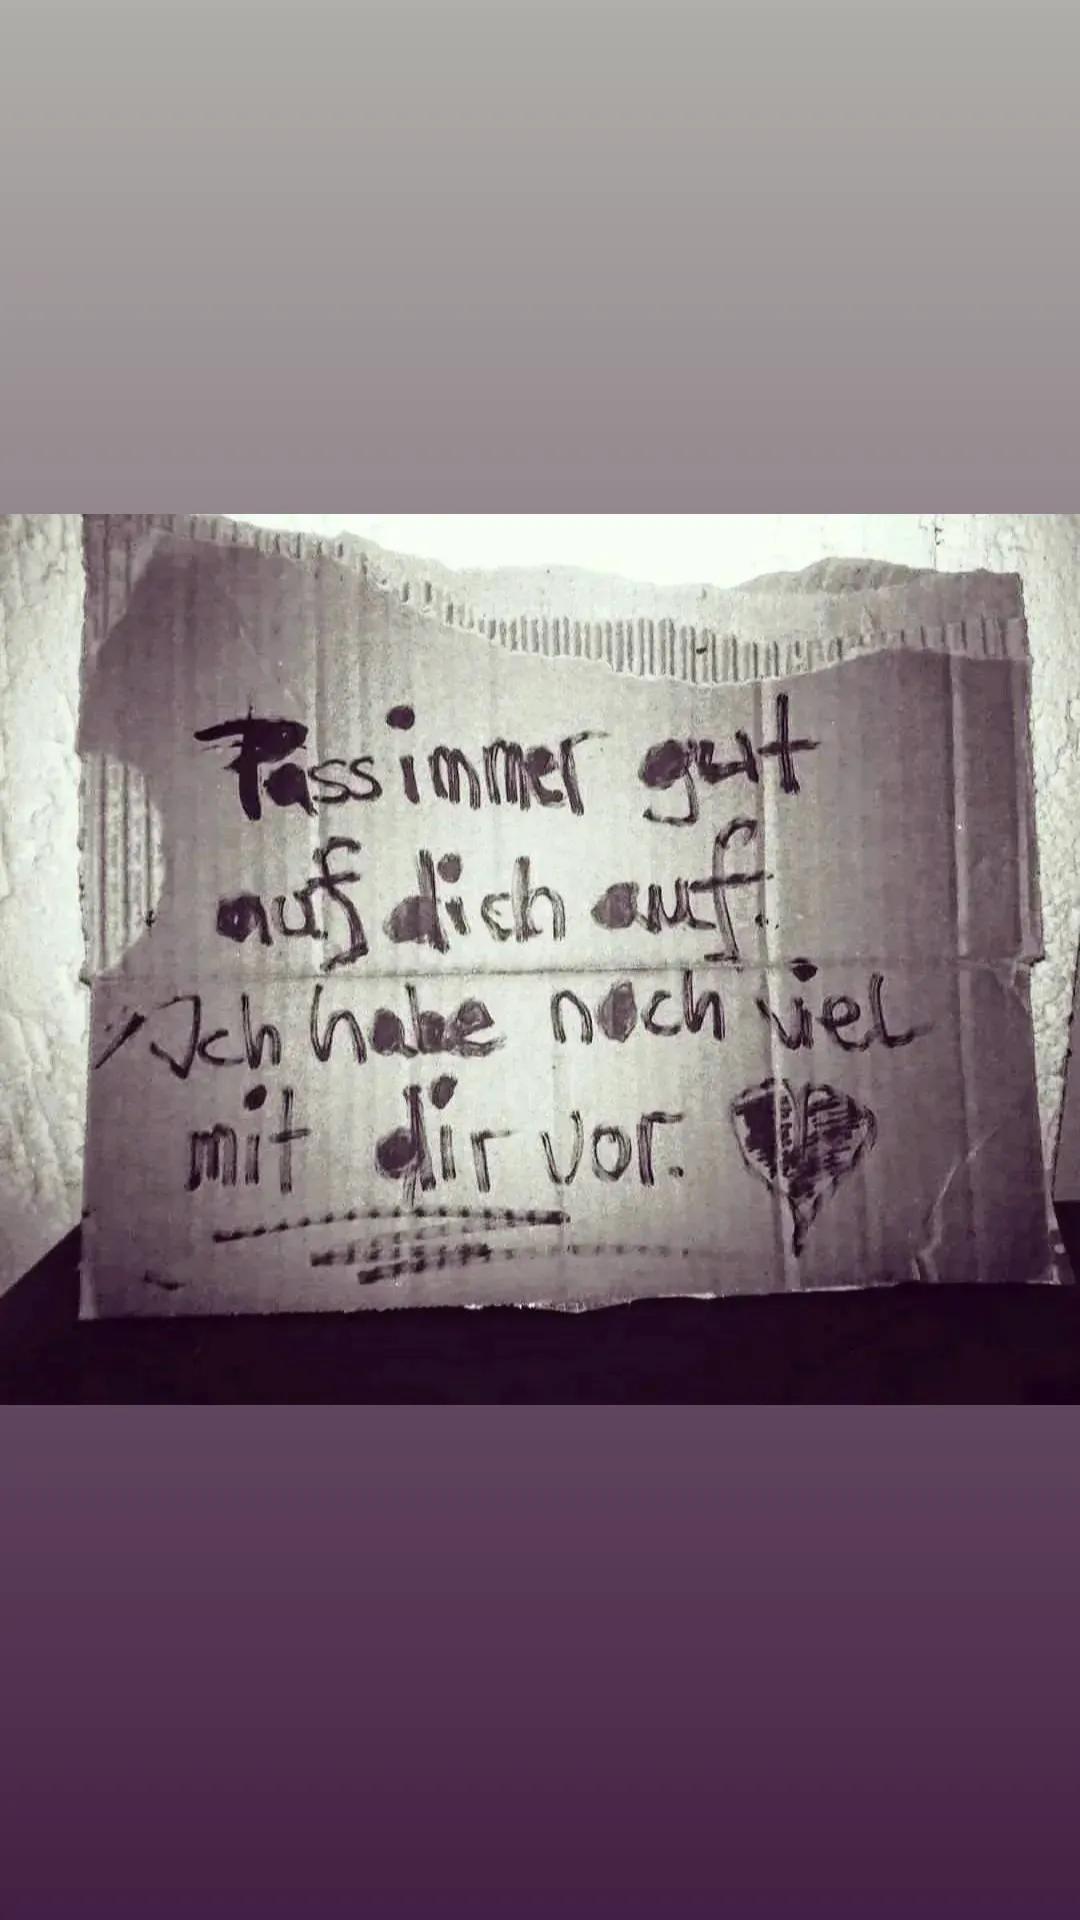 Pass immer gut
auf dich auf.
Ich habe noch viel
mit dir vor.